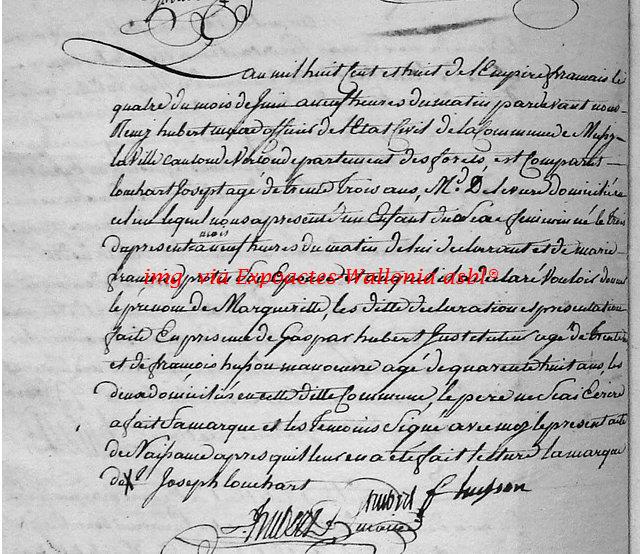 an mil huit cent et huit de l'Empire francais le
quatre du mois de Juin a neuf heures du matin pardevant nous
hubert officier de l'Etat Civil de la Commune de Mussy
la ville canton de Virton departement des forets, est Comparut
louchart Joseph agé de trente trois ans, Md. D domicilié en
ce lieu lequel nous a presenté un Enfant du Sexe feminin né le trois
du present mois a neuf heures du matin de lui declarant et de marie
francoise petit Son Epouse et auquel il a declaré vouloir donner
le prenom de Margueritte, les ditte declaration et presentation
faite En presence de Gaspar hubert Instituteur agé de trente
et de francois husson manoeuvre agé de quarente huit ans, les
deux domiciliés en cette ditte Commune, le pere ne Scais Ecrire
a fait Sa marque et les temoins Signé avec moy le present acte
de Naissance apres qu'il leur en a eté fait lecture la marque
de X Joseph louchart
hubert f husson
hubert maire
img via Expoactes-Wallonia asbl®